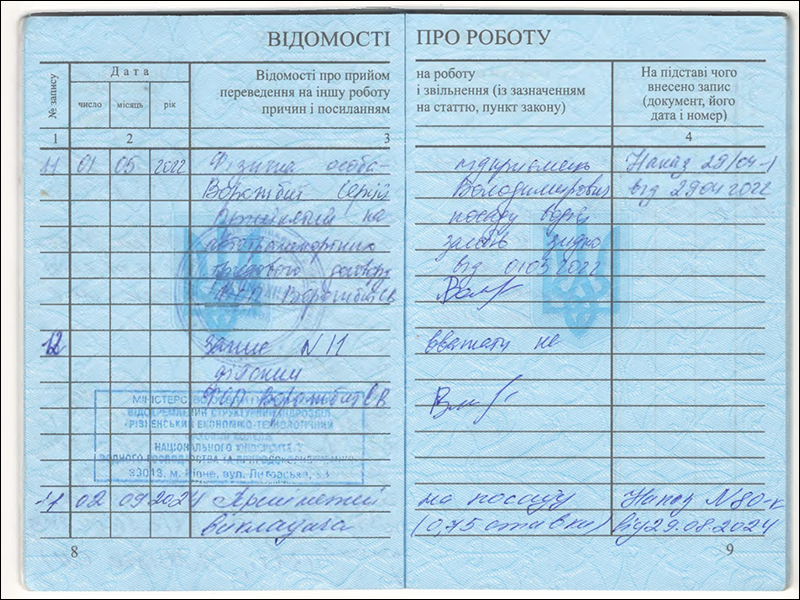 ВІДОМОСТІ ПРО РОБОТУ
№ запису
Дата
число місяць рік
Відомості про прийом
переведення на іншу роботу
причин і посиланням
на роботу
і звільнення (із зазначенням
на статтю, пункт закону)
На підставі чого
внесено запис
(документ, його
дата і номер)
1 2 3 4
11 01 05 2022 Фізична особа- підприємець Наказ 29/04-1
Ворожбит Сергій Володимирович від 29.04.2022
Прийнятий на посаду водія
автотранспортних засобів згідно
трудового договору від 01.05.2022
ФОП Ворожбит СВ
12 Запис N 11 вважати не
дійсним
ФОП Ворожбит С В
МІНІСТЕРСТВО
ВІДОКРЕМЛЕНИЙ СТРУКТУРНИЙ ПІДРОЗДІЛ
РІВНЕНСЬКИЙ ЕКОНОМІКО-ТЕХНОЛОГІЧНИЙ
ФАХОВИЙ КОЛЕДЖ
НАЦІОНАЛЬНОГО УНІВЕРСИТЕТУ
ВОДНОГО ГОСПОДАРСТВА ТА ПРИРОДОКОРИСТУВАННЯ
33013, м. Рівне, вул.
11 02 09 2024 на посаду Наказ N80-к
викладача (0,75 ставки) від 29.08.2024
8 9